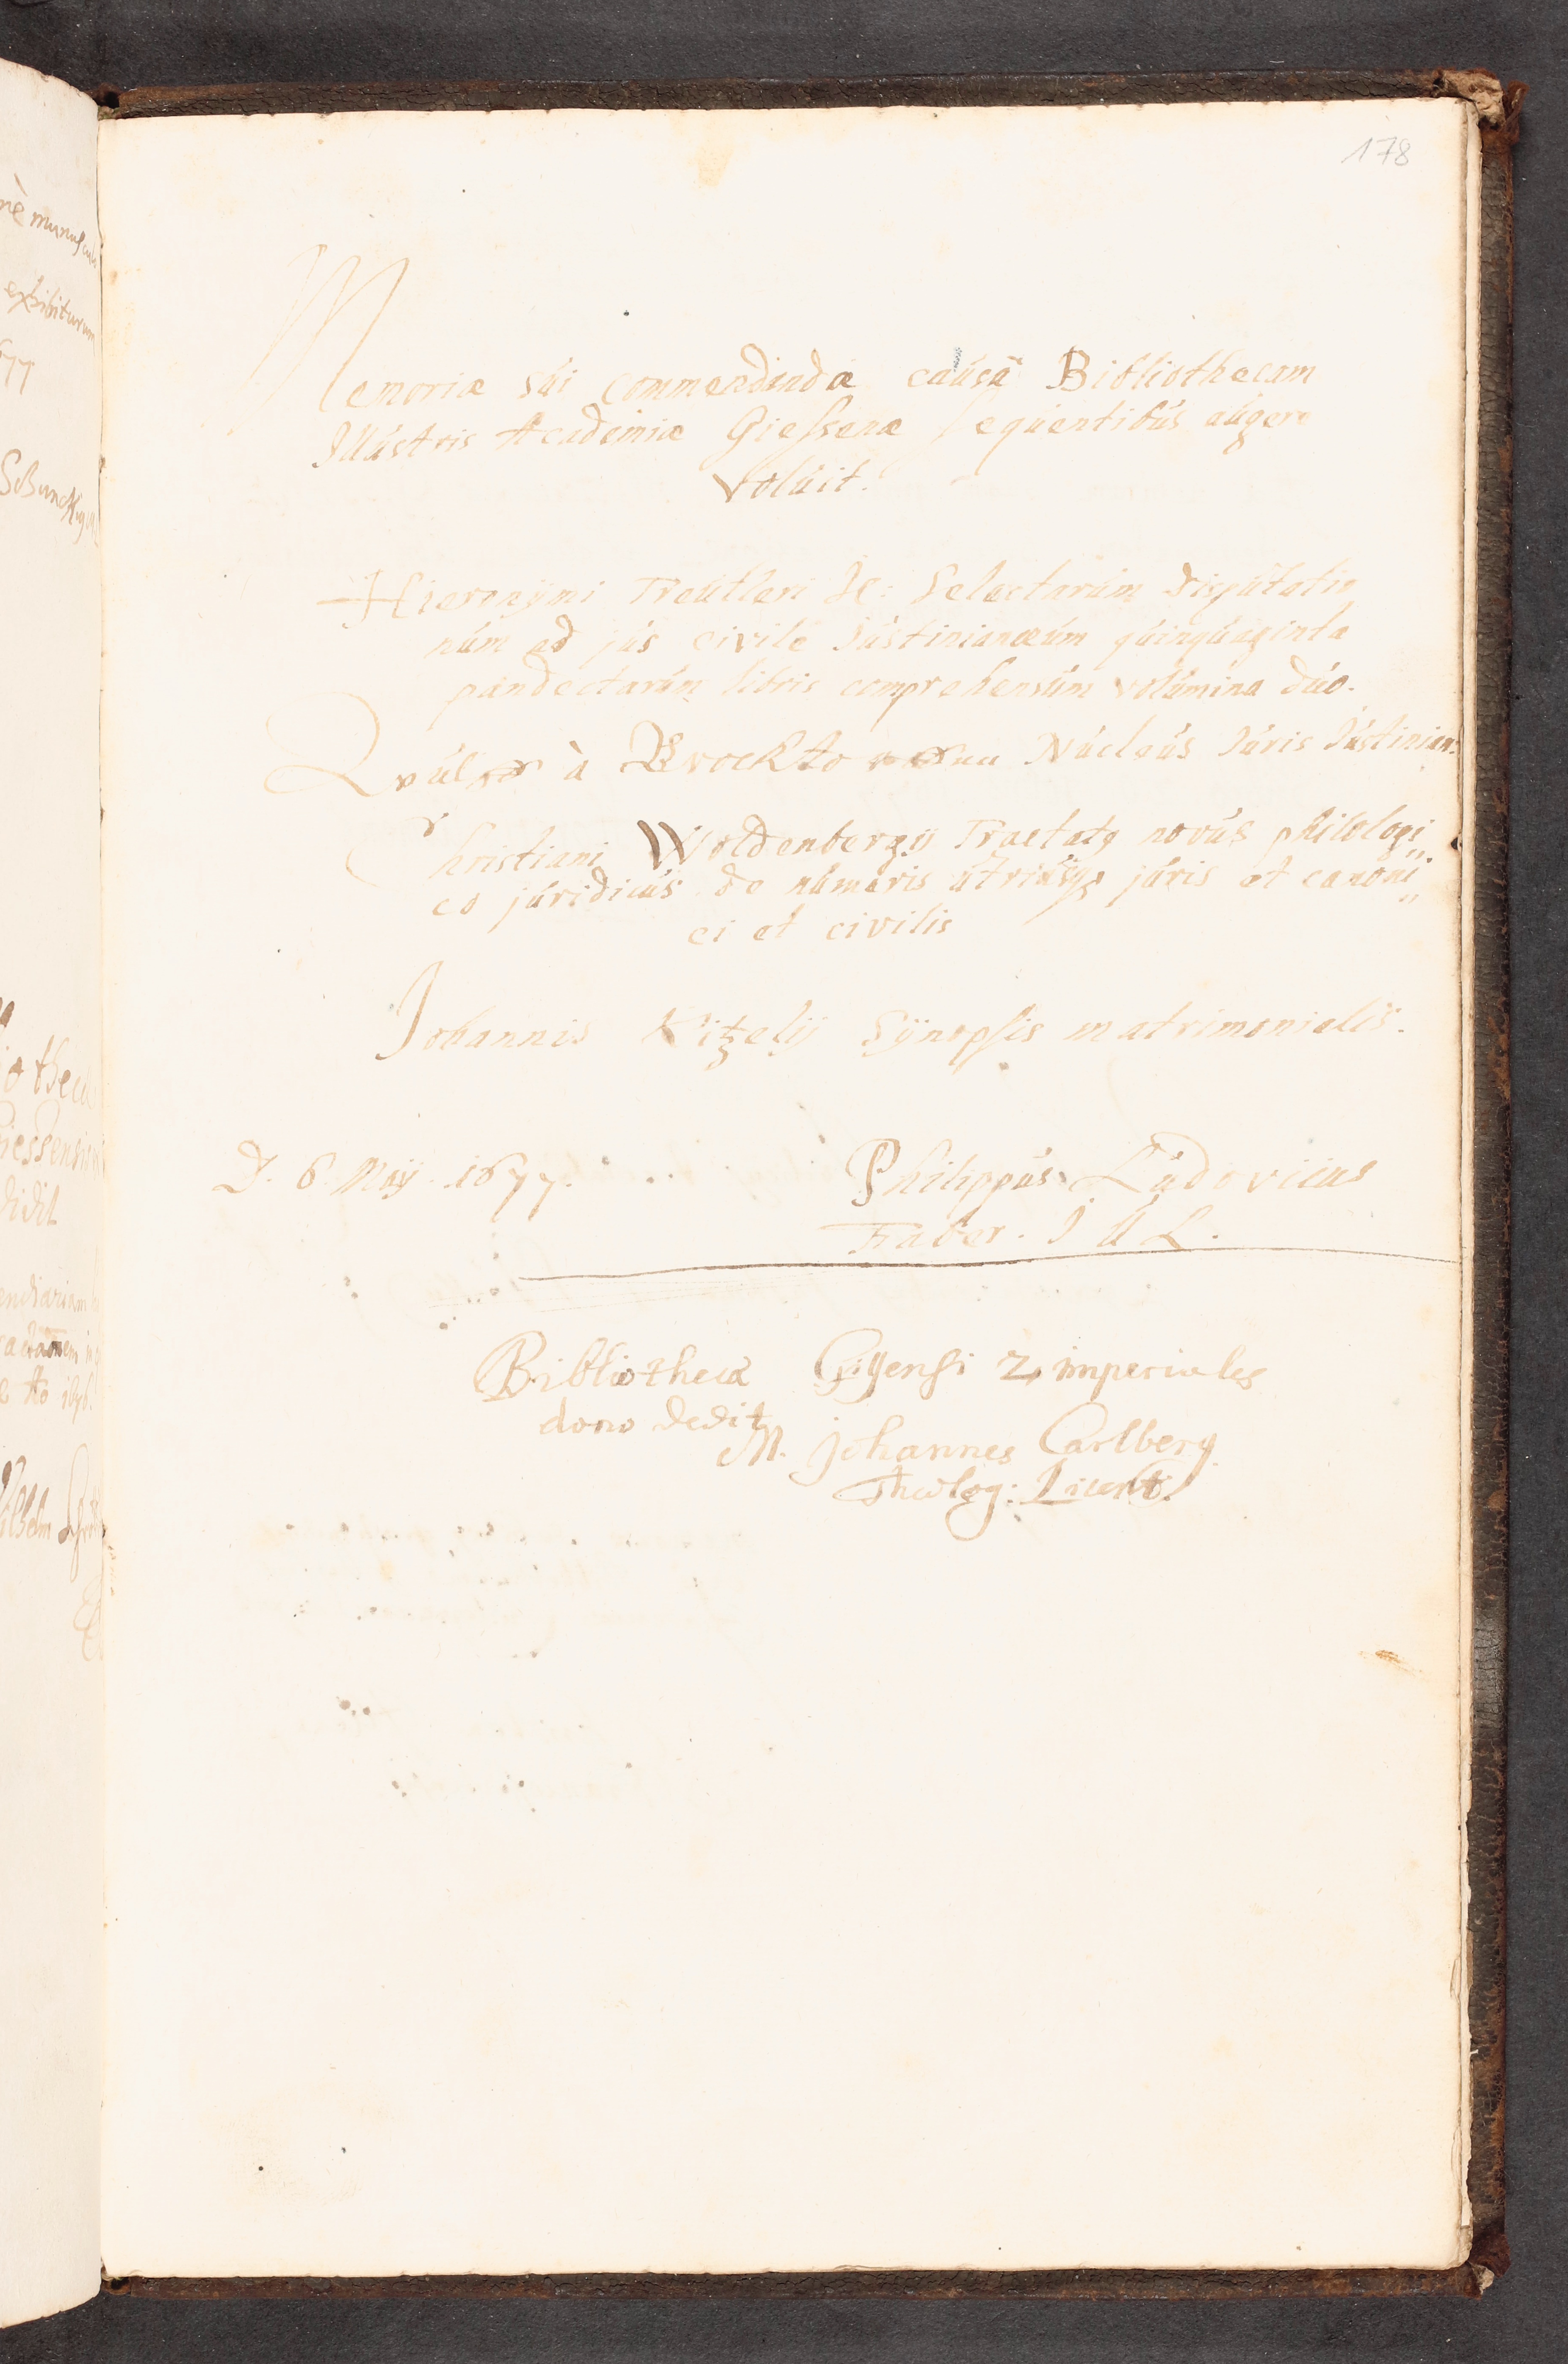 178
Memoriæ súi commendendæ caúsa Bibliothecam
Illústris Academiæ Giessenæ sequentibús aúgere
volúit.
Hieronÿmi Treútleri JC: Selectarúm disputatio
núm ad jús civile Jústinianæúm qúinqúaginta
pandectarúm libris comprehensúm volúmina dúo.
à Brockto Núcleús Júris Jústinian:
Christiani Woldenbergij Tractatq novús philologi„
co júridicús de núméris útriúsq; júris et canoni„
ci et civilis
Johannis Kitzelij Sÿnopsis matrimonialis.
D. 6. Maÿ. 1677. Philippús Lúdovicus
Faber. J U L.
Bibliothecæ Gissensi 2 imperiales
dono dedit
M. Johannes Carlberg
Theolog: Licent.
exhibiturum